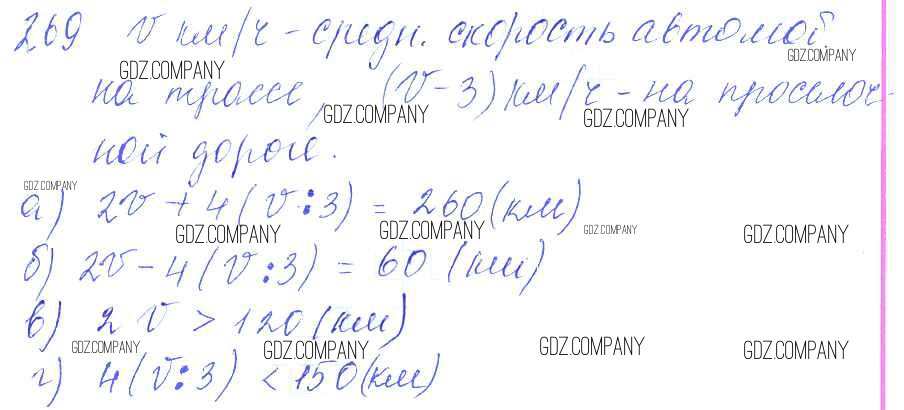 269 v км/ч - средн. скорость автомоб.
на трассе, (v - 3) км/ч - на просёлоч-
ной дороге.
а) 2v + 4(v : 3) = 260 (км)
б) 2v - 4(v : 3) = 60 (км)
в) 2v > 120 (км)
г) 4(v : 3) < 150 (км)
GDZ.COMPANY
GDZ.COMPANY
GDZ.COMPANY
GDZ.COMPANY
GDZ.COMPANY
GDZ.COMPANY
GDZ.COMPANY
GDZ.COMPANY
GDZ.COMPANY
GDZ.COMPANY
GDZ.COMPANY
GDZ.COMPANY
GDZ.COMPANY